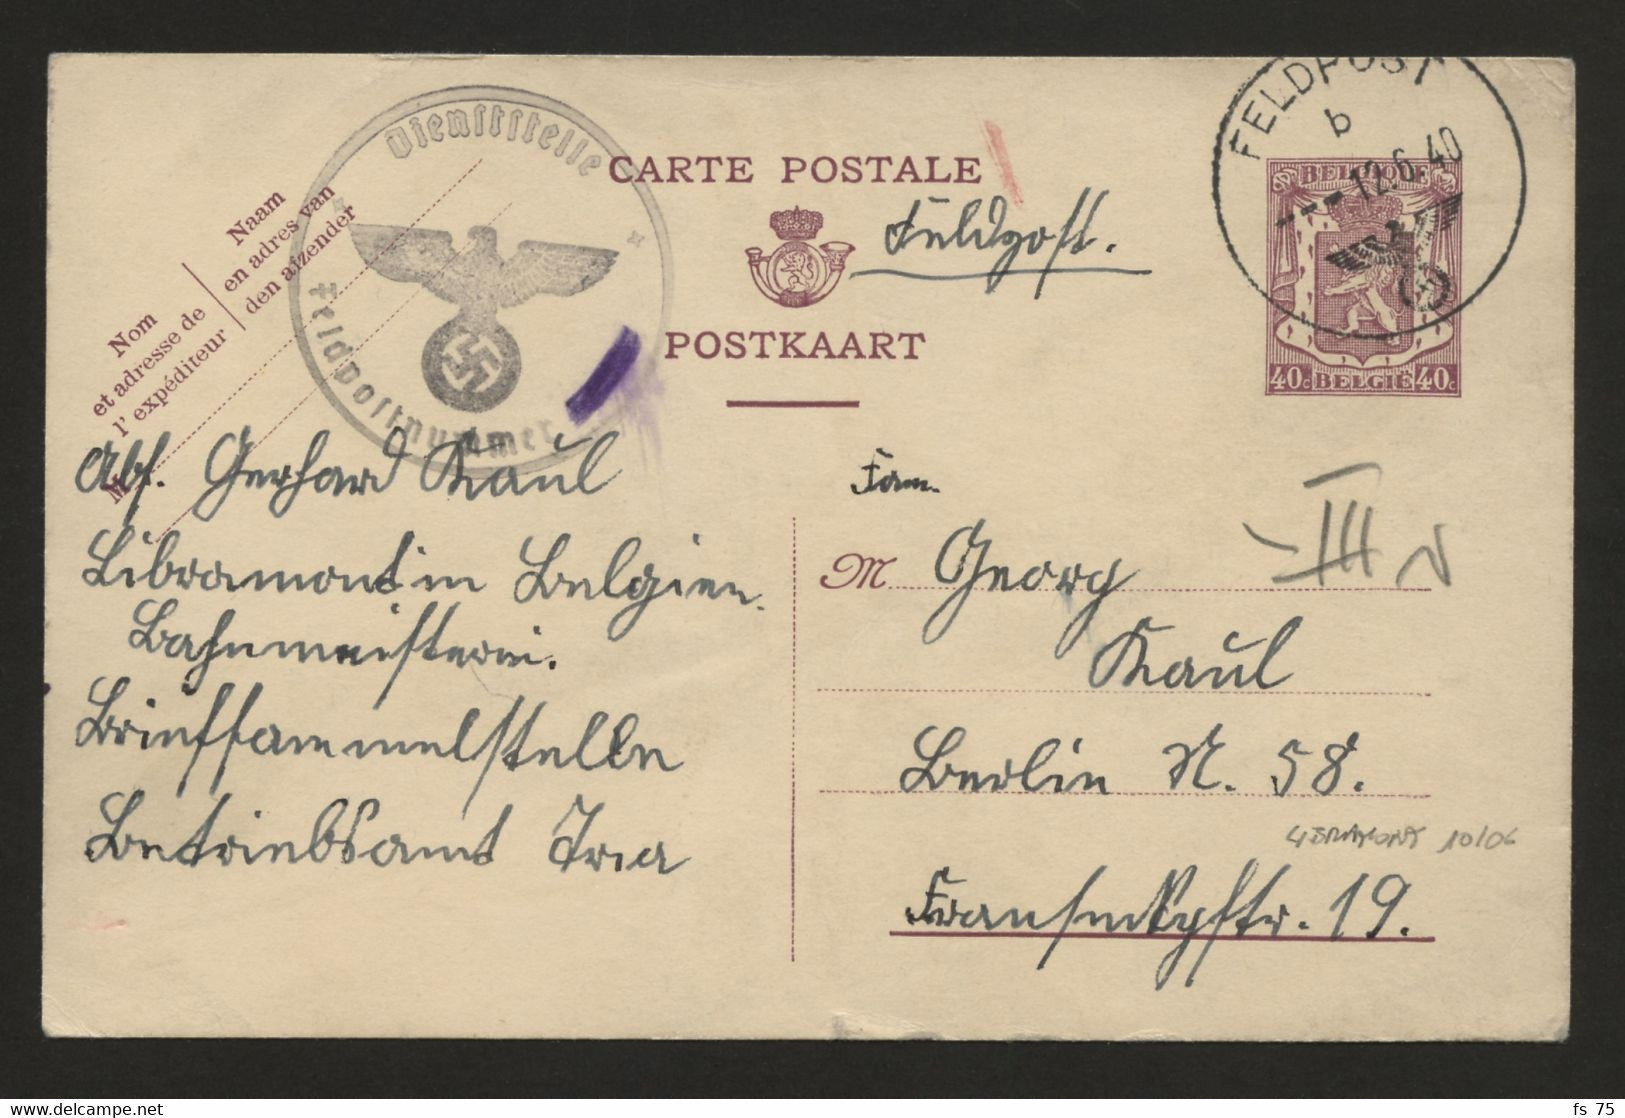 CARTE POSTALE
POSTKAART
Feldpost.
Dienststelle
Feldpostnummer
FELDPOST
b
---12.6.40
BELGIQUE
40c BELGIË 40c
Nom
et adresse de
l' expéditeur
Naam
en adres van
den afzender
M
Abs. Gerhard Kaul
Libramont in Belgien.
Bahnmeisterei.
Briefsammelstelle
Betriebsamt Trier
Fam.
M Georg
Kaul
III
Berlin N. 58.
LIBRAMONT 10/06
Franseckystr. 19.
fs 75